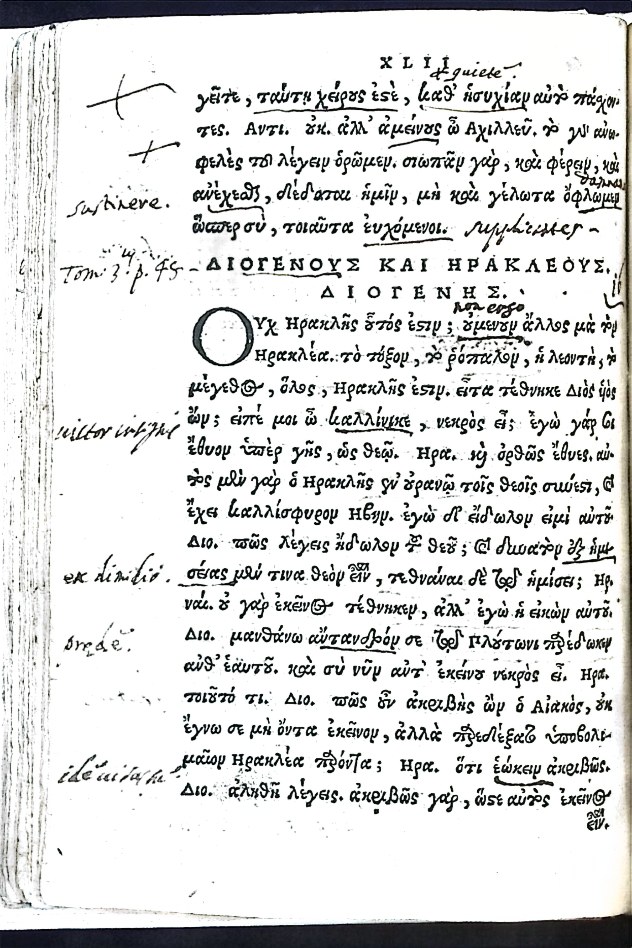 XLII
& quiete.
γεῖτε, ταύτῃ χείρους ἐστὲ, καθ' ἡσυχίαν αὐτὸ πάχον-
τες. Αντι. οὐκ. ἀλλ' ἀμείνους ὦ Αχιλλεῦ. τὸ γὰρ ἀνω-
φελὲς τοῦ λέγειν ὁρῶμεν. σιωπᾶν γὰρ, καὶ φέρειν, καὶ
sustinere.
ἀνέχεσθαι, δέδοται ἡμῖν, μὴ καὶ γέλωτα ὄφλωμεν
ὥσπερ σὺ, τοιαῦτα εὐχόμενοι. supplicantes
Tom. 3. p. 45
ΔΙΟΓΕΝΟΥΣ ΚΑΙ ΗΡΑΚΛΕΟΥΣ.
ΔΙΟΓΕΝΗΣ.
non ergo
ΟΥχ Ηρακλῆς οὗτός ἐστιν; οὐμενουν ἄλλος μὰ τὸν
Ηρακλέα. τὸ τόξον, τὸ ῥόπαλον, ἡ λεοντῆ, τὸ
μέγεθος, ὅλος, Ηρακλῆς ἐστιν. εἶτα τέθνηκε Διὸς υἱὸς
ὤν; εἰπέ μοι ὦ καλλίνικε, νεκρὸς εἶ; ἐγὼ γάρ σοι
ἔθυον ὑπὲρ γῆς, ὡς θεῷ. Ηρα. καὶ ὀρθῶς ἔθυες. αὐ-
τὸς μὲν γὰρ ὁ Ηρακλῆς ἐν οὐρανῷ τοῖς θεοῖς σύνεστι, καὶ
ἔχει καλλίσφυρον Ηβην. ἐγὼ δ' εἴδωλον εἰμὶ αὐτοῦ.
Διο. πῶς λέγεις εἴδωλον τοῦ θεοῦ; καὶ δυνατὸν ἐξ ἡμι-
ex dimidio.
σείας μὲν τινα θεὸν εἶναι, τεθνάναι δὲ τῷ ἡμίσει; Ηρ.
ναί. οὐ γὰρ ἐκεῖνος τέθνηκεν, ἀλλ' ἐγὼ ἡ εἰκὼν αὐτοῦ.
Διο. μανθάνω ἀντανδρόν σε τῷ Πλούτωνι παρέδωκεν
ἀνθ' ἑαυτοῦ. καὶ σὺ νῦν ἀντ' ἐκείνου νεκρὸς εἶ. Ηρα.
τοιοῦτό τι. Διο. πῶς οὖν ἀκριβὴς ὢν ὁ Αἰακὸς, οὐκ
ἔγνω σε μὴ ὄντα ἐκεῖνον, ἀλλὰ παρεδέξατο ὑποβολι-
μαῖον Ηρακλέα παρόντα; Ηρα. ὅτι ἐῴκειν ἀκριβῶς.
Διο. ἀληθῆ λέγεις. ἀκριβῶς γὰρ, ὥστε αὐτὸς ἐκεῖνος
εἶναι.